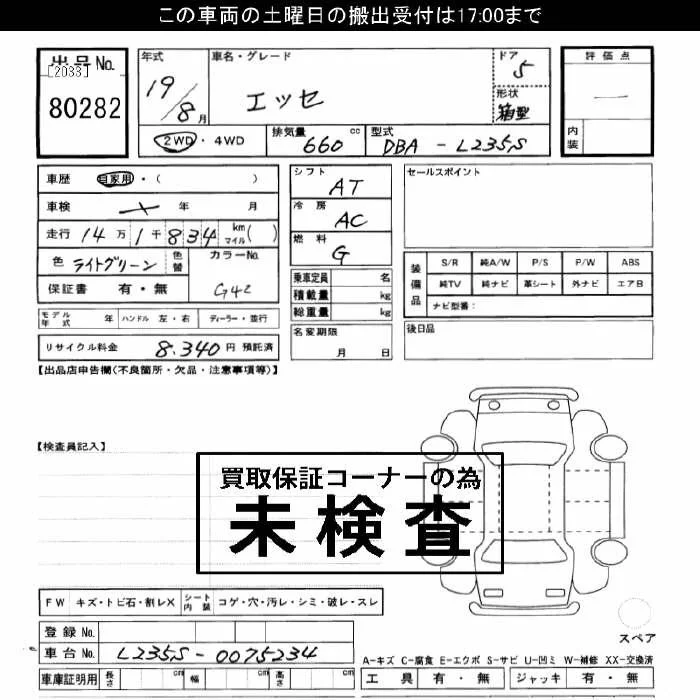 この車両の土曜日の搬出受付は17:00まで
出品No. [2033] 80282
年式 19/8月
車名・グレード エッセ
ドア 5
形状 箱型
評価点 —
内装
2WD・4WD
排気量 660 cc
型式 DBA-L235S
車歴 自家用・( )
車検 年 月
走行 14万1千834 km マイル( )
色 ライトグリーン 色替
カラーNo. G42
保証書 有・無
モデル年式 年 ハンドル 左・右 ディーラー・並行
リサイクル料金 8.340円 預託済
シフト AT
冷房 AC
燃料 G
乗車定員 名
積載量 kg
総重量 kg
名変期限 月 日
セールスポイント
装備品 S/R 純A/W P/S P/W ABS
純TV 純ナビ 革シート 外ナビ エアB
ナビ型番:
後日品
【出品店申告欄(不良箇所・欠品・注意事項等)】
【検査員記入】
買取保証コーナーの為
未検査
FW キズ・トビ石・割レX シート内装 コゲ・穴・汚レ・シミ・破レ・スレ
登録No.
車台No. L235S-0075234
車庫証明用 長さ cm 幅 cm 高さ cm
スペア
A-キズ C-腐食 E-エクボ S-サビ U-凹ミ W-補修 XX-交換済
工具 有・無 ジャッキ 有・無